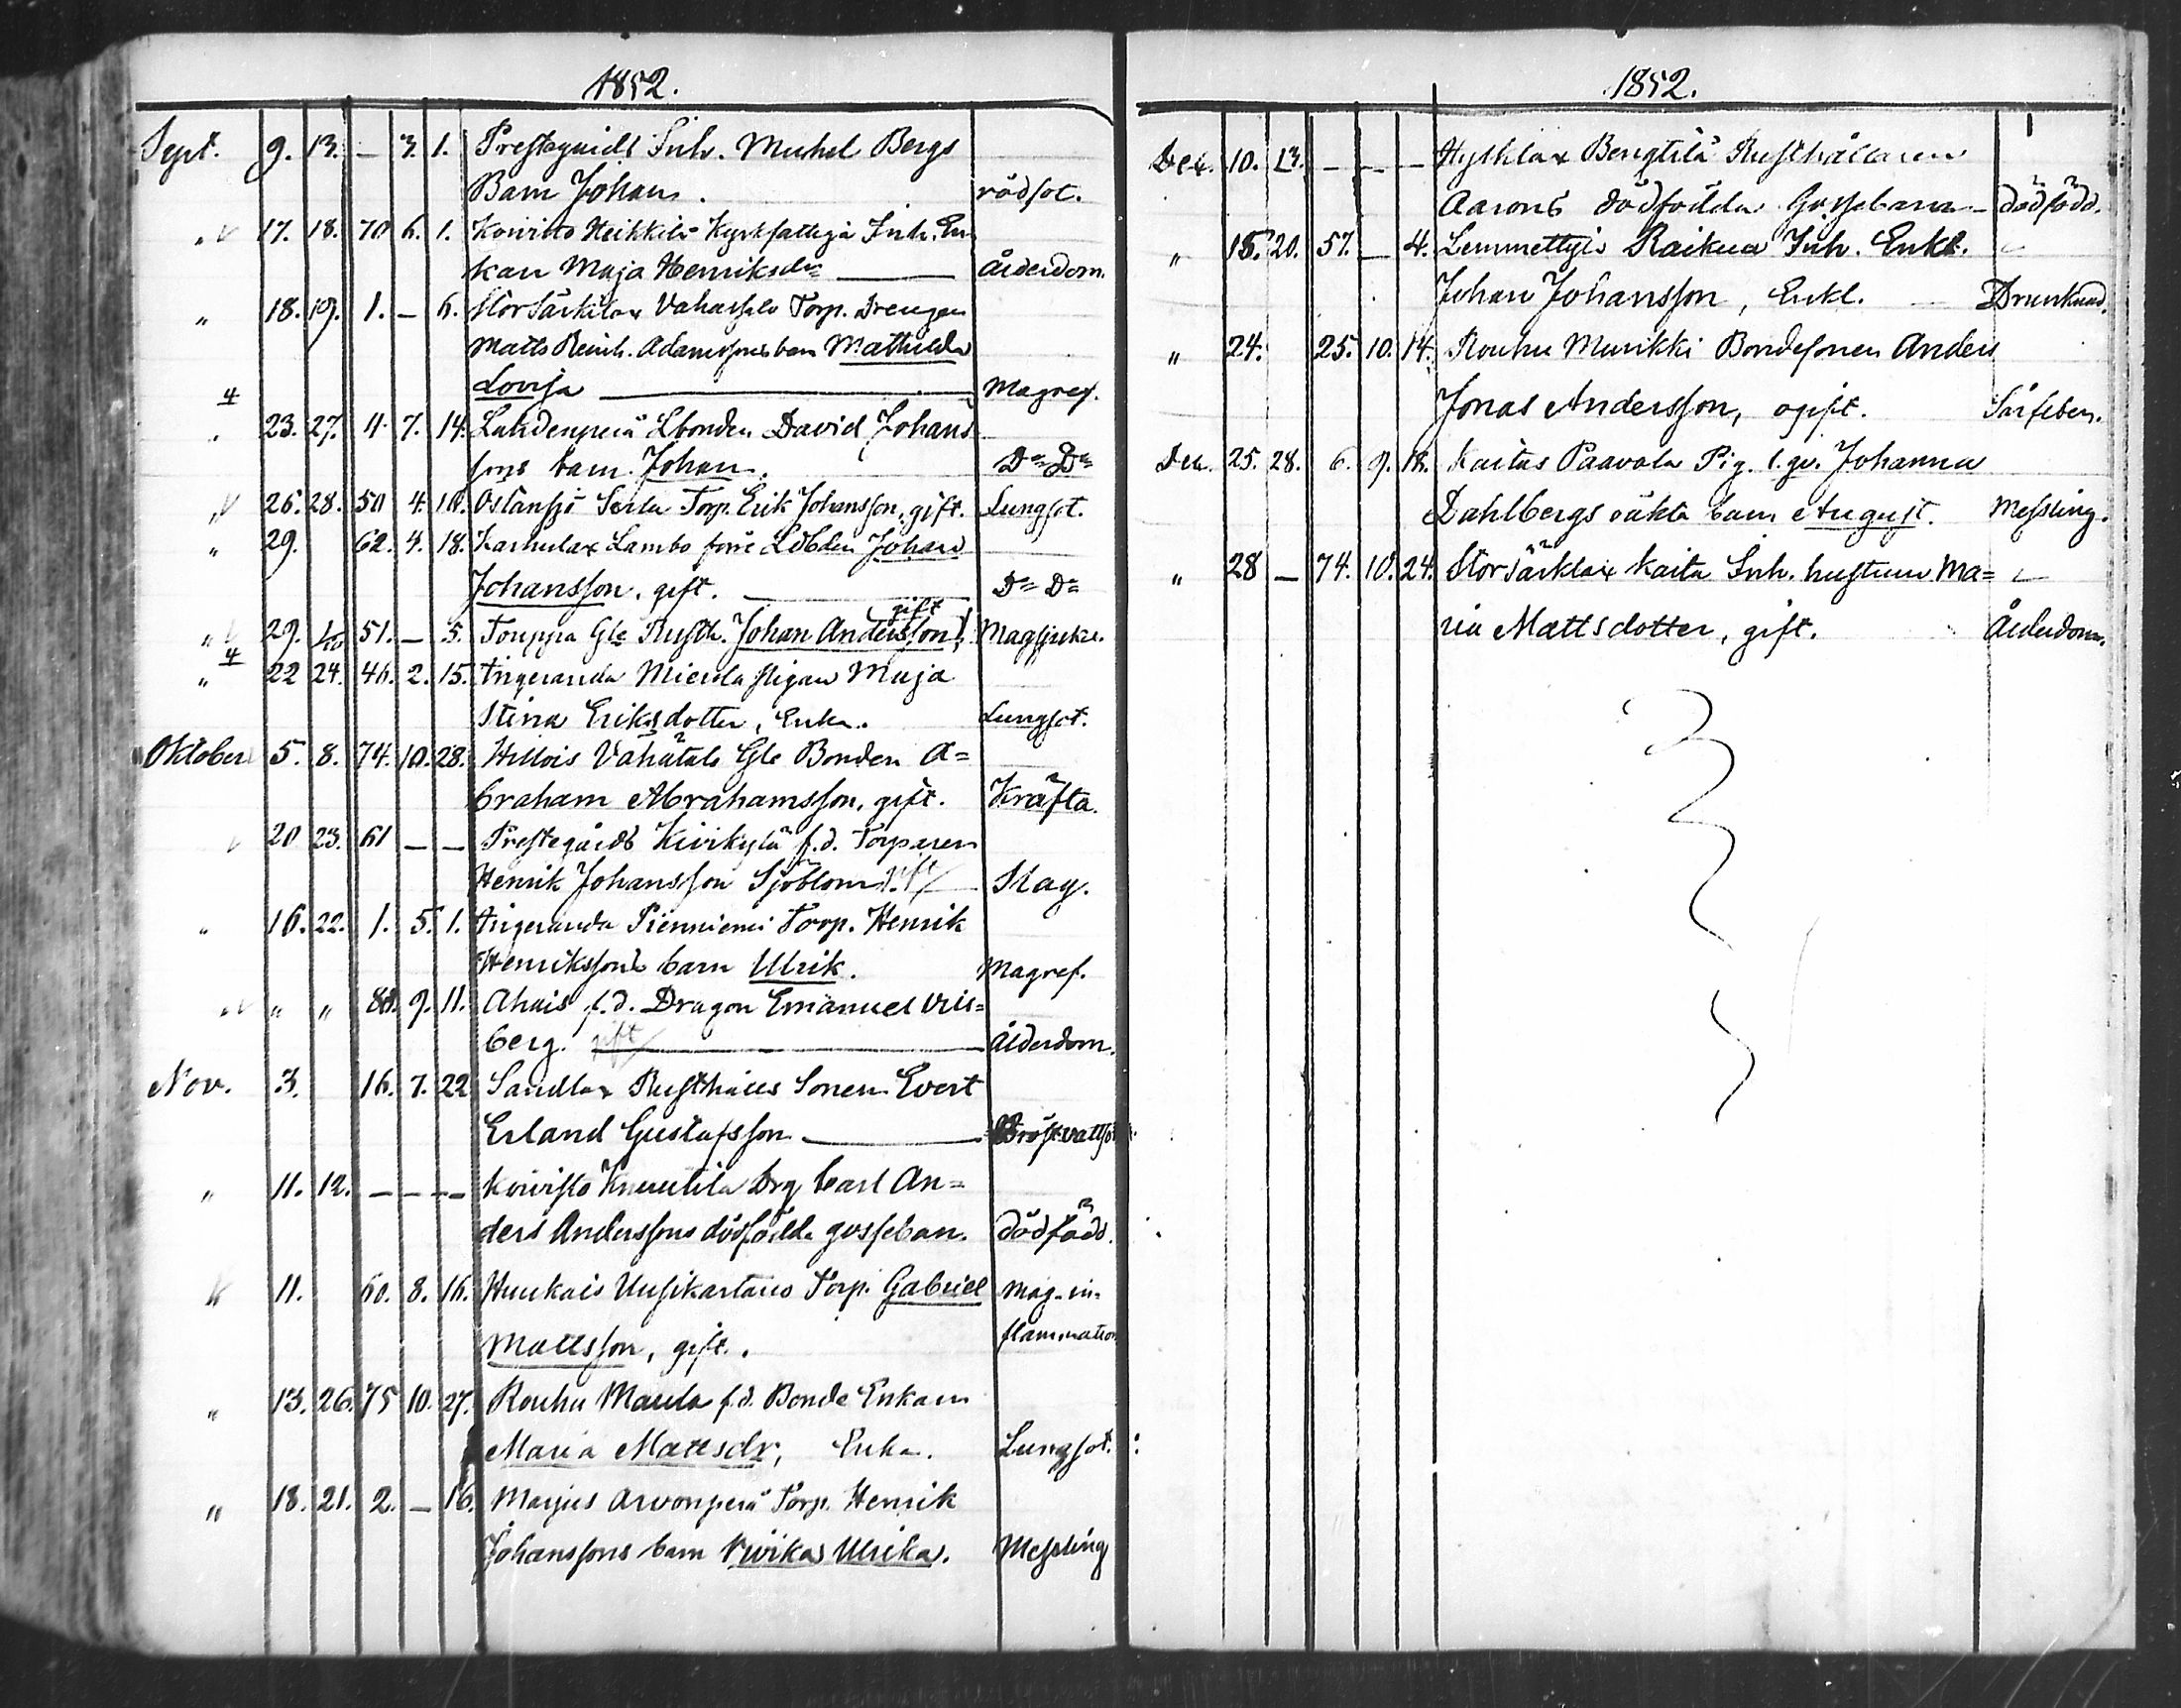 1852.
Sept. 9. 13. — 3. 1. Prestegårds Inh. Michel Bergs
Barn Johan. rödsot.
" 17. 18. 70 6. 1. Koivisto Heikkilä Kyrkfattiga Inh. En
kan Maja Henriksdr — Ålderdom.
" 18. 19. 1. — 6. Storsärkilax Vahasalo Torp. Drengen
Matts Reinh. Adamssons barn Mathilda
Lovisa — Magref.
" 23. 27. 11. 7. 14. Lahdenperä Lbonden David Johans
sons barn Johan. Do Do
" 26. 28. 50 4. 10. Östansjö Torp. Erik Johansson, gift. Lungsot.
" 29. 62. 4. 18. Karhulax Lambo förre Johan
Johansson, gift. — Do Do
" 29. 1/10 51. — 5. Touppa Gle Rusth. Johan Andersson, gift Magsjuka.
" 22 24. 46. 2. 15. Angeranda Mierola pigan Maja
Stina Eriksdotter, Enka. Lungsot.
Oktober 5. 8. 74. 10. 28. Hillois Vähätalo Gle Bonden A=
braham Abrahamsson, gift. Kräfta.
20 23. 61 — — Prestegårds Kivikylä f.d. Torparen
Henrik Johansson Sjöblom gift — Slag.
" 16. 22. 1. 5. 1. Angeranda Pienniemi Torp. Henrik
Henrikssons barn Ulrik. Magref.
" " " 9. 11. Ahais f.d. Dragon Emanuel Wris=
berg. gift — Ålderdom.
Nov. 3. 16. 7. 22 Sandlax Rusthålls Sonen Evert
Erland Gustafsson — Bröstvattsot.
" 11. 12. — — — Koivisto Knuutila Drg Carl An=
ders Anderssons dödfödda gossebarn. dödfödd.
11. 60. 8. 16. Huukais Uusikartano Torp. Gabriel Mag-in-
Mattsson, gift. flammation
" 13. 26. 75 10. 27. Rouhu Maula f.d. Bonde Enkan
Maria Mattsdr, Enka. Lungsot.
" 18. 21. 2. — 16. Marjus Arvonperä Torp. Henrik
Johanssons barn Wivika Ulrika. Messling
1852.
Dec. 10. 13. — — — Hythlax Bengtilä Rusthållaren
Aarons dödfödda Gossebarn — dödfödd.
" 15. 20. 57. — 4. Lemmettyis Raikua Inh. Enkl.
Johan Johansson, Enkl. — Drunknad.
" 24. 25. 10. 14. Rouhu Murikki Bondesonen Anders
Jonas Andersson, ogift. Sårfeber.
Dec. 25. 28. 6. 9. 18. Kaitas Paavola Pig. Johanna
Dahlbergs oäkta barn August. Messling.
" 28 — 74. 10. 24. Storsärkilax Kaita Inh. hustrun Ma=
ria Mattsdotter, gift. Ålderdom.